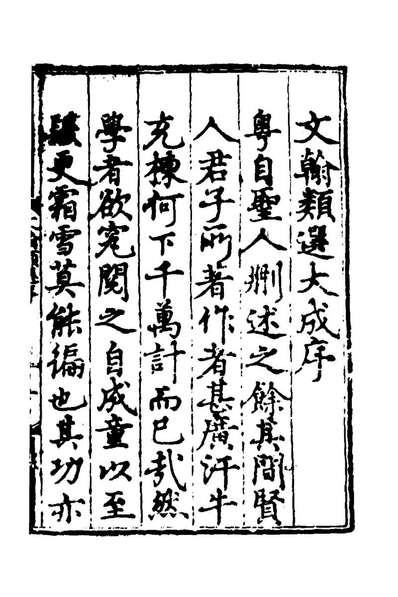 文翰類選大成序
粤自聖人刪述之餘其間賢
人君子所著作者甚廣汗牛
充棟何下千萬計而已哉然
學者欲究閱之自成童以至
更霜雪莫能徧也其功亦